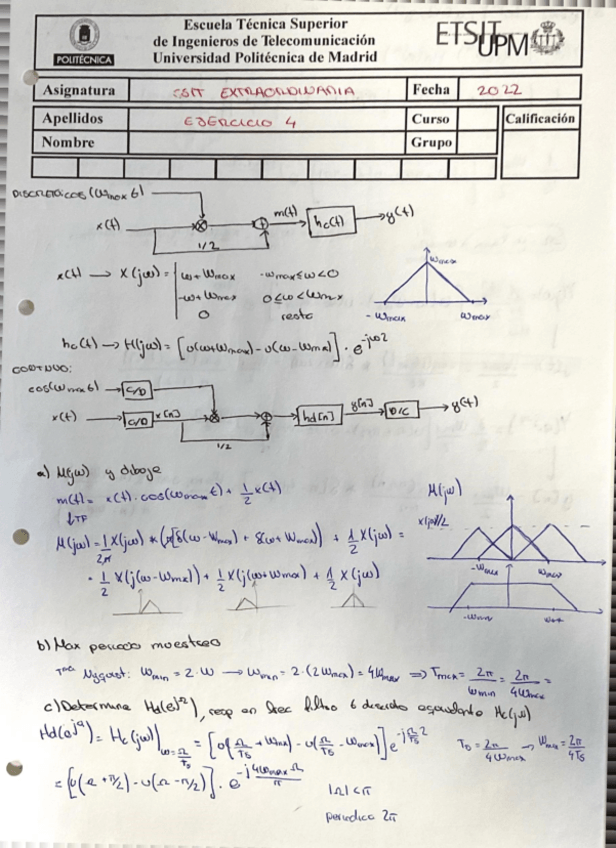 Escuela Técnica Superior
de Ingenieros de Telecomunicación
Universidad Politécnica de Madrid
POLITÉCNICA
ETSIT UPM
Asignatura EXTRAORDINARIA Fecha 2022
Apellidos EJERCICIO 4 Curso Calificación
Nombre Grupo
x(t) m(t) hc(t) y(t)
1/2
x(t) → X(jω) = ω + ωmax -ωmax ≤ ω < 0
-ω + ωmax 0 ≤ ω < ωmax
0 resto
ωmax
-ωmax ωmax
hc(t) → H(jω) = [u(ω+ωmax) - u(ω-ωmax)] · e^-jω2
CONTINUO:
C/D
x(t) C/D x[n] hd[n] y[n] D/C y(t)
1/2
a) M(jω) y dibuje
m(t) = x(t) · cos(ωmax t) + 1/2 x(t)
↓TF
M(jω) = 1/2π X(jω) * (π[δ(ω-ωmax) + δ(ω+ωmax)]) + 1/2 X(jω) =
= 1/2 X(j(ω-ωmax)) + 1/2 X(j(ω+ωmax)) + 1/2 X(jω)
M(jω)
-ωmax ωmax
b) Max periodo muestreo
Nyquist: ωmin = 2·ω → ωmin = 2·(2ωmax) = 4ωmax ⇒ Tmax = 2π/ωmin = 2π/4ωmax =
c) Determine Hd(e^jΩ), resp en frec filtro discreto equivalente Hc(jω)
Hd(e^jΩ) = Hc(jω)|ω=Ω/Ts = [u(Ω/Ts + ωmax) - u(Ω/Ts - ωmax)] e^-jΩ/Ts 2
Ts = 2π/4ωmax → ωmax = 2π/4Ts
= [u(Ω + π/2) - u(Ω - π/2)] · e^-j4ωmaxΩ/π |Ω| < π
periodica 2π